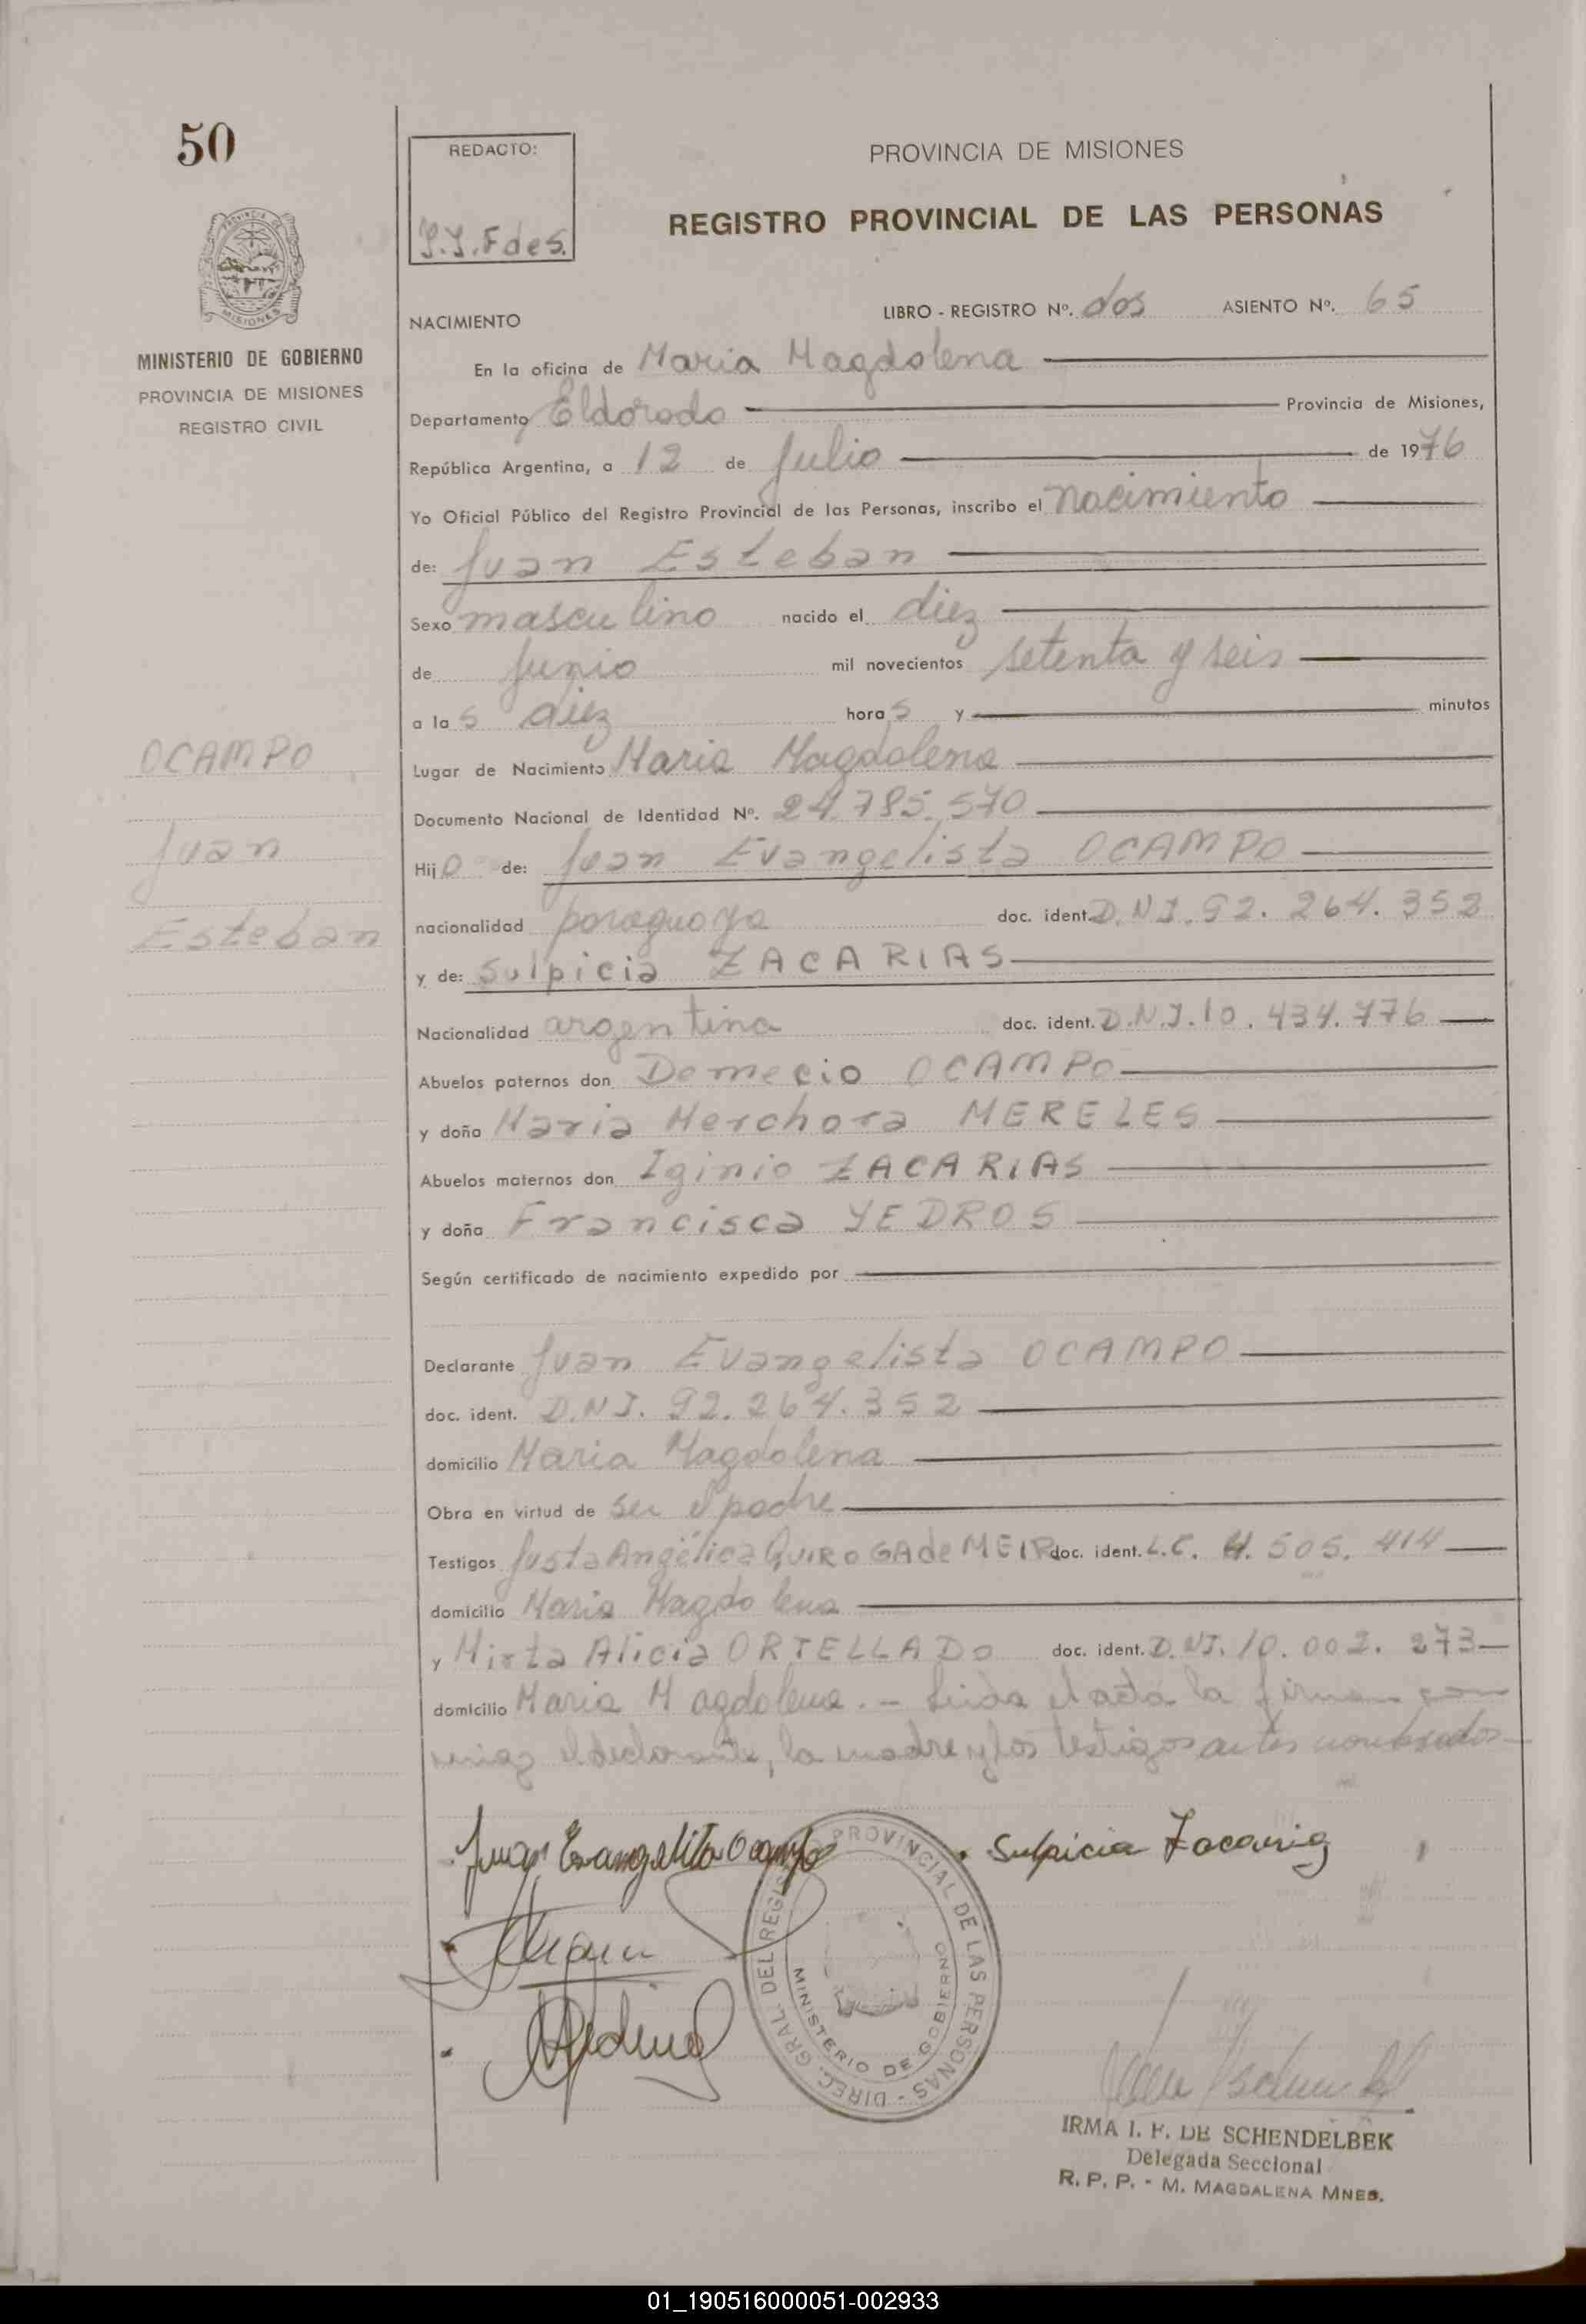 50
REDACTO:
PROVINCIA DE MISIONES
REGISTRO PROVINCIAL DE LAS PERSONAS
MINISTERIO DE GOBIERNO
PROVINCIA DE MISIONES
REGISTRO CIVIL
NACIMIENTO
LIBRO - REGISTRO Nº. dos ASIENTO Nº. 65
En la oficina de Maria Magdalena
Departamento Eldorado Provincia de Misiones,
República Argentina, a 12 de Julio de 1976
Yo Oficial Público del Registro Provincial de las Personas, inscribo el nacimiento
de: Juan Esteban
Sexo masculino nacido el diez
de Junio mil novecientos setenta y seis
a las diez horas y minutos
OCAMPO
Juan
Esteban
Lugar de Nacimiento Maria Magdalena
Documento Nacional de Identidad Nº. 24.785.570
Hijo de: Juan Evangelista OCAMPO
nacionalidad paraguaya doc. ident. D.N.I. 92.264.352
y de: Sulpicia ZACARIAS
Nacionalidad argentina doc. ident. D.N.I. 10.434.776
Abuelos paternos don Demecio OCAMPO
y doña Maria Merchora MERELES
Abuelos maternos don Iginio ZACARIAS
y doña Francisca YEDROS
Según certificado de nacimiento expedido por
Declarante Juan Evangelista OCAMPO
doc. ident. D.N.I. 92.264.352
domicilio Maria Magdalena
Obra en virtud de ser el padre
Testigos Justa Angélica QUIROGA de MEIR doc. ident. L.C. 4.505.414
domicilio Maria Magdalena
y Mirta Alicia ORTELLADO doc. ident. D.N.I. 10.002.273
domicilio Maria Magdalena.- Leida el acta la firman con
migo el declarante, la madre y los testigos antes nombrados
Juan Evangelista Ocampo
Sulpicia Zacarias
DIREC. GRAL. DEL REGISTRO PROVINCIAL DE LAS PERSONAS -
MINISTERIO DE GOBIERNO
IRMA I. F. DE SCHENDELBEK
Delegada Seccional
R. P. P. - M. MAGDALENA MNES.
01_190516000051-002933